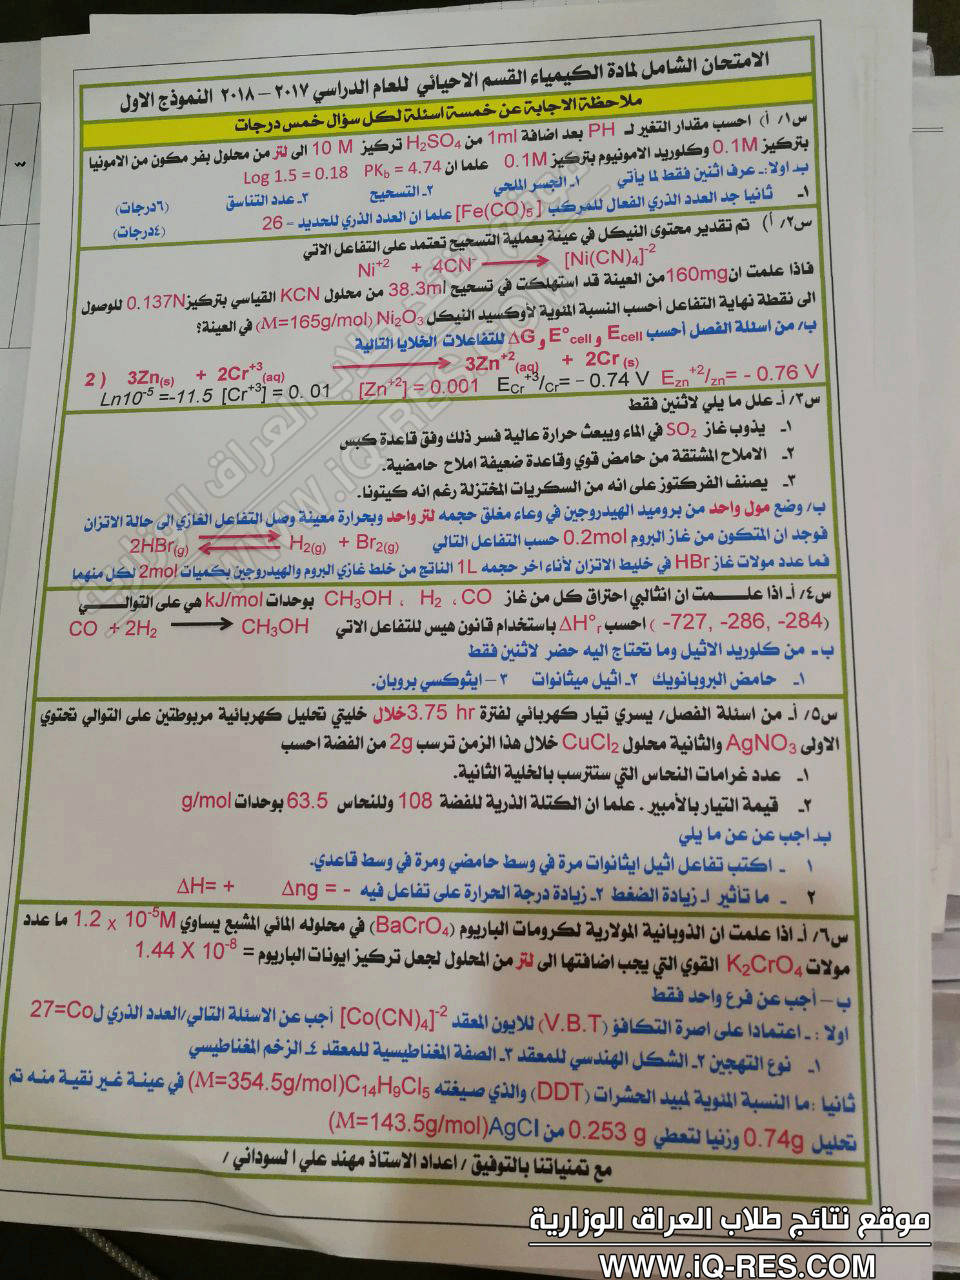 الامتحان الشامل لمادة الكيمياء القسم الاحيائي للعام الدراسي ٢٠١٧ – ٢٠١٨ النموذج الاول
ملاحظة الاجابة عن خمسة اسئلة لكل سؤال خمس درجات
س١/ أ) احسب مقدار التغير لـ PH بعد اضافة 1ml من H₂SO₄ تركيز 10 M الى لتر من محلول بفر مكون من الامونيا
بتركيز 0.1M وكلوريد الامونيوم بتركيز 0.1M علما ان PKb = 4.74 Log 1.5 = 0.18
ب/ اولا:ـ عرف اثنين فقط لما يأتي ١ـ الجسر الملحي ٢ـ التسحيح ٣ـ عدد التناسق (٦درجات)
١ـ ثانيا جد العدد الذري الفعال للمركب [Fe(CO)₅] علما ان العدد الذري للحديد – 26 (٤درجات)
س٢/ أ) تم تقدير محتوى النيكل في عينة بعملية التسحيح تعتمد على التفاعل الاتي
Ni⁺² + 4CN⁻ ⟶ [Ni(CN)₄]⁻²
فاذا علمت ان 160mg من العينة قد استهلكت في تسحيح 38.3ml من محلول KCN القياسي بتركيز 0.137N للوصول
الى نقطة نهاية التفاعل أحسب النسبة المئوية لأوكسيد النيكل Ni₂O₃ (M=165g/mol) في العينة؟
ب/ من اسئلة الفصل أحسب Ecell و E°cell و ΔG للتفاعلات الخلايا التالية
2 ) 3Zn(s) + 2Cr⁺³(aq) ⟶ 3Zn⁺²(aq) + 2Cr (s)
Ln10⁻⁵ =-11.5 [Cr⁺³] = 0. 01 [Zn⁺²] = 0.001 ECr⁺³/Cr= – 0.74 V Ezn⁺²/zn= - 0.76 V
س٣/ أـ علل ما يلي لاثنين فقط
١ـ يذوب غاز SO₂ في الماء ويبعث حرارة عالية فسر ذلك وفق قاعدة كبس
٢ـ الاملاح المشتقة من حامض قوي وقاعدة ضعيفة املاح حامضية.
٣ـ يصنف الفركتوز على انه من السكريات المختزلة رغم انه كيتونا.
ب/ وضع مول واحد من بروميد الهيدروجين في وعاء مغلق حجمه لتر واحد وبحرارة معينة وصل التفاعل الغازي الى حالة الاتزان
فوجد ان المتكون من غاز البروم 0.2mol حسب التفاعل التالي 2HBr(g) ⇌ H₂(g) + Br₂(g)
فما عدد مولات غاز HBr في خليط الاتزان لأناء اخر حجمه 1L الناتج من خلط غازي البروم والهيدروجين بكميات 2mol لكل منهما
س٤/ أـ اذا علمت ان انثالبي احتراق كل من غاز CH₃OH ، H₂ ، CO بوحدات kJ/mol هي على التوالي
(-727, -286, -284 ) احسب ΔH°r باستخدام قانون هيس للتفاعل الاتي CO + 2H₂ ⟶ CH₃OH
ب ـ من كلوريد الاثيل وما تحتاج اليه حضر لاثنين فقط
١ـ حامض البروبانويك ٢ـ اثيل ميثانوات ٣– ايثوكسي بروبان.
س٥/ أـ من اسئلة الفصل/ يسري تيار كهربائي لفترة 3.75 hr خلال خليتي تحليل كهربائية مربوطتين على التوالي تحتوي
الاولى AgNO₃ والثانية محلول CuCl₂ خلال هذا الزمن ترسب 2g من الفضة احسب
١ـ عدد غرامات النحاس التي ستترسب بالخلية الثانية.
٢ـ قيمة التيار بالأمبير . علما ان الكتلة الذرية للفضة 108 وللنحاس 63.5 بوحدات g/mol
بـ اجب عن عن ما يلي
١ ـ اكتب تفاعل اثيل ايثانوات مرة في وسط حامضي ومرة في وسط قاعدي.
٢ ـ ما تأثير ١ـ زيادة الضغط ٢ـ زيادة درجة الحرارة على تفاعل فيه Δng = - ΔH= +
س٦/ أـ اذا علمت ان الذوبانية المولارية لكرومات الباريوم (BaCrO₄) في محلوله المائي المشبع يساوي 1.2 x 10⁻⁵M ما عدد
مولات K₂CrO₄ القوي التي يجب اضافتها الى لتر من المحلول لجعل تركيز ايونات الباريوم = 1.44 X 10⁻⁸
ب – أجب عن فرع واحد فقط
اولا : ـ اعتمادا على اصرة التكافؤ (V.B.T) للايون المعقد [Co(CN)₄]⁻² أجب عن الاسئلة التالي/العدد الذري ل27=Co
١ـ نوع التهجين ٢ـ الشكل الهندسي للمعقد ٣ـ الصفة المغناطيسية للمعقد ٤ـ الزخم المغناطيسي
ثانيا :ما النسبة المئوية لمبيد الحشرات (DDT) والذي صيغته C₁₄H₉Cl₅(M=354.5g/mol) في عينة غير نقية منه تم
تحليل 0.74g وزنيا لتعطي 0.253 g من AgCl(M=143.5g/mol)
مع تمنياتنا بالتوفيق / اعداد الاستاذ مهند علي السوداني /
موقع نتائج طلاب العراق الوزارية
WWW.iQ-RES.COM